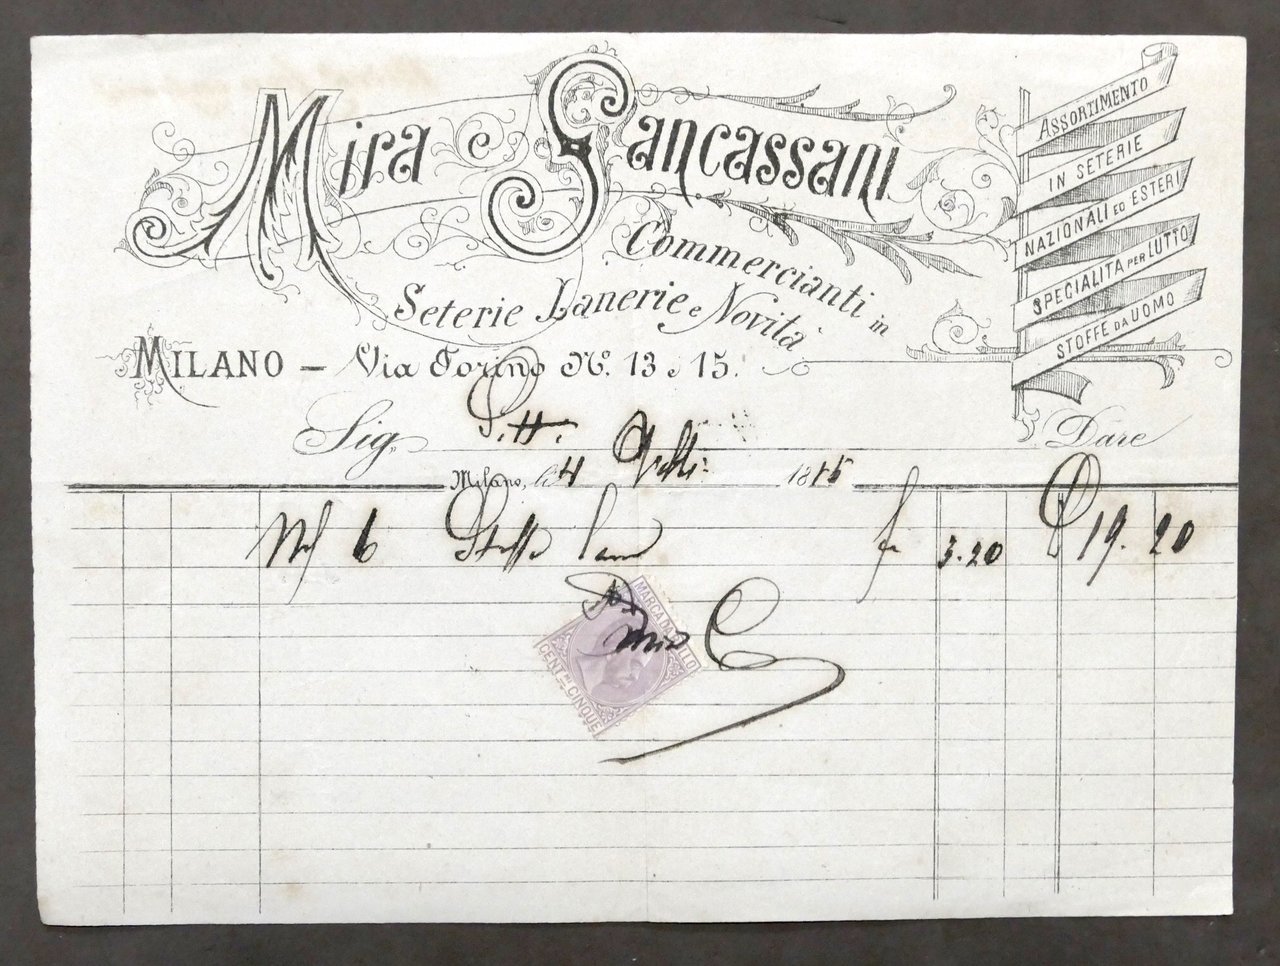 Mira e Sancassani
Commercianti in
Seterie Lanerie e Novità
MILANO - Via Torino No. 13 e 15.
ASSORTIMENTO
IN SETERIE
NAZIONALI ED ESTERI
SPECIALITA PER LUTTO
STOFFE DA UOMO
Sig. Dare
Milano, li 4 1885
6 Stoffa lana 3.20 19.20
MARCA DA BOLLO
CENT.MI CINQUE